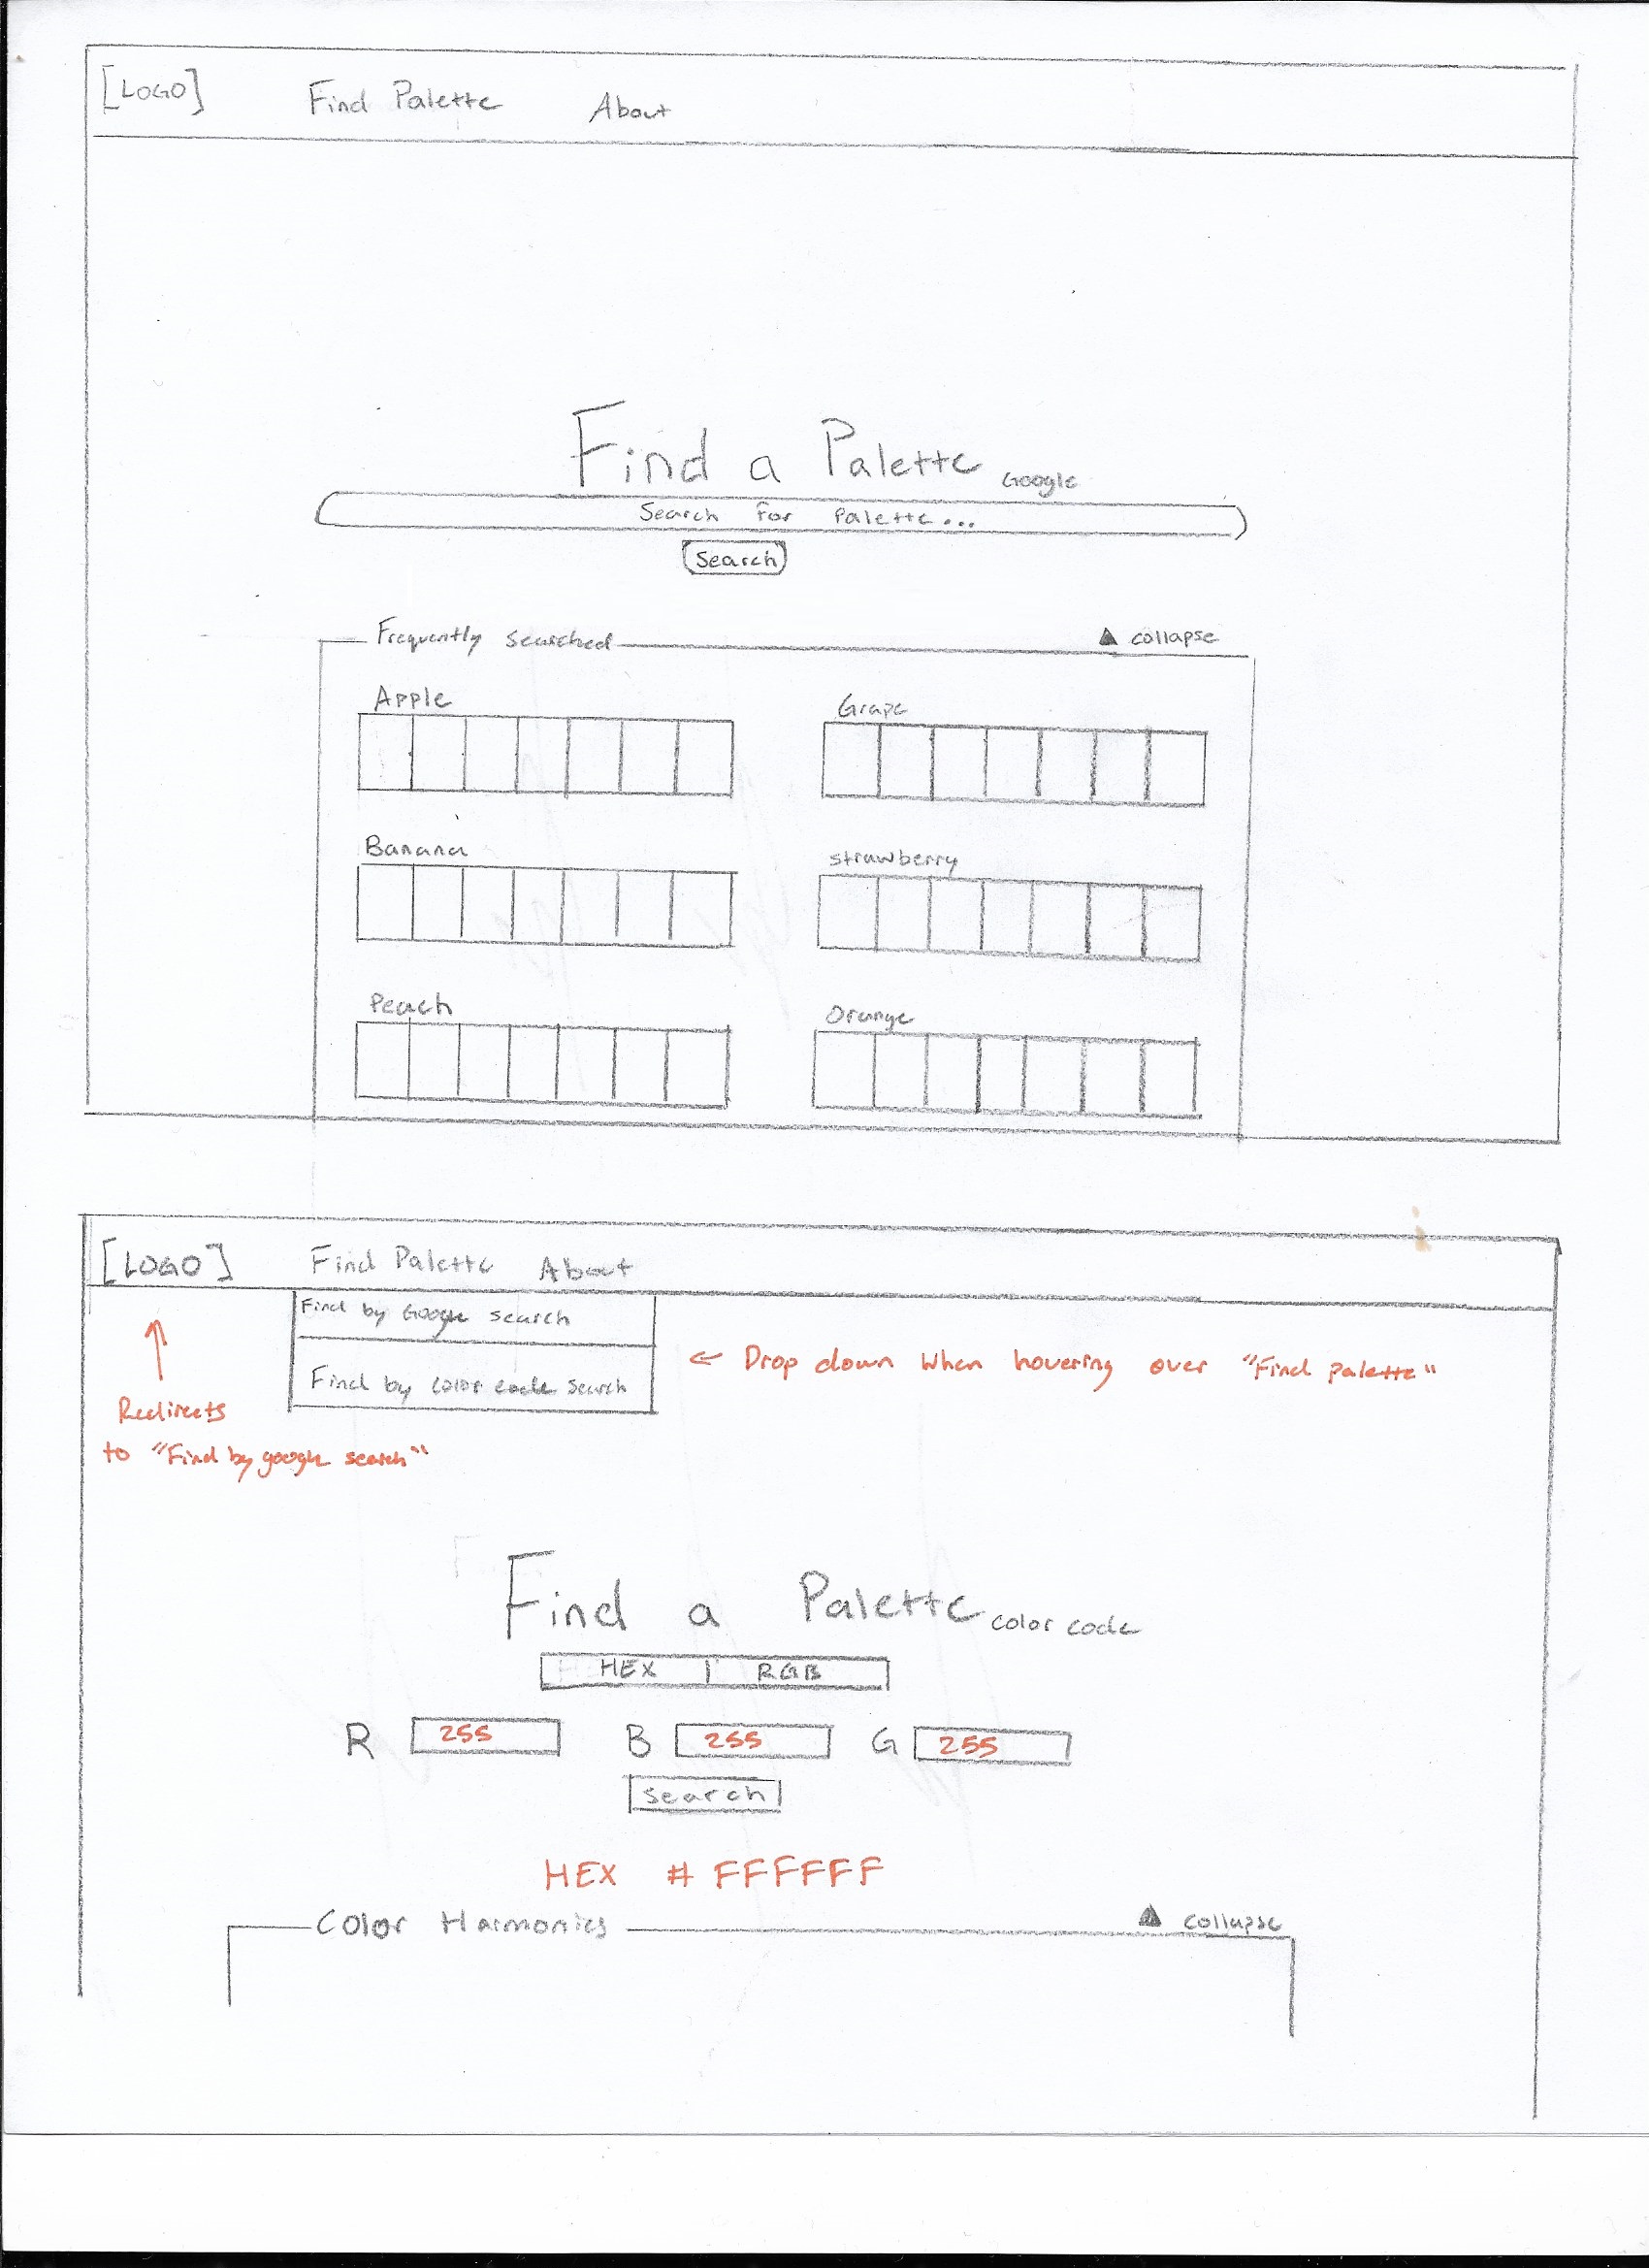 [LOGO] Find Palette About
Find a Palette Google
Search for Palette...
Search
Frequently Searched ▲ collapse
Apple Grape
Banana strawberry
Peach Orange
[LOGO] Find Palette About
Find by Google search
Find by color code search
← Drop down when hovering over "Find palette"
↑
Redirects
to "Find by google search"
Find a Palette color code
HEX | RGB
R 255 B 255 G 255
Search
HEX # FFFFFF
Color Harmonies ▲ collapse